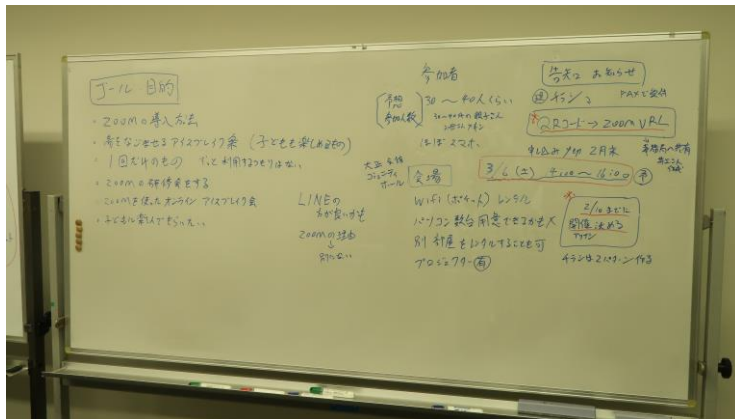 ゴール 目的
・ZOOMの導入方法
・場をなごませるアイスブレイク案 (子どもも楽しめるもの)
・1回だけのもの ずっと利用するつもりはない
・ZOOMの研修会をする
・ZOOMを使ったオンライン アイスブレイク会
・子どもに楽しんでもらいたい
LINEの
方が良いかも
ZOOMの理由
↓
特にない
参加者
予想
参加人数
30〜40人くらい
ほぼスマホ
会場
コミュニティ
ホール
WiFi (ポケット) レンタル
パソコン数台用意できるかも
プロジェクター 有
告知 お知らせ
チラシ
FAXで送付
QRコード→ZOOM URL
申し込み〆切 2月末
3/6 (土)
2/10までに
開催決める
チラシは2パターン作る